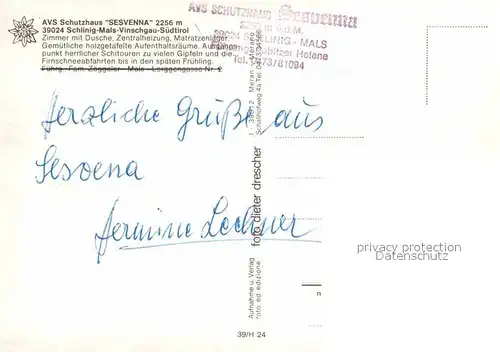 AVS Schutzhaus "SESVENNA" 2256 m
39024 Schlinig-Mals-Vinschgau-Südtirol
Zimmer mit Dusche, Zentralheizung, Matratzenlager.
Gemütliche holzgetäfelte Aufenthaltsräume.
punkt herrlicher Schitouren zu vielen Gipfeln und die
Firnschneeabfahrten bis in den späten Frühling.
Führg. Fam. Zöggeler - Mals - Lorggengasse Nr. 2
AVS SCHUTZHAUS Sesvenna
2256 m ü.d.M.
39024 SCHLINIG - MALS
Helene
Tel. 0473/81094
Herzliche Grüße aus
Sesvena
Hermine Lechner
Schafhofweg 4a
foto dieter drescher
Aufnahme u. Verlag
foto ed edizione
39/H 24
privacy protection
Datenschutz